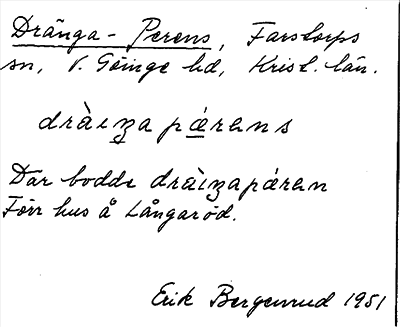 Dränga-Perens, Farstorps
sn, V. Göinge hd, Krist. län.
dràiŋa pǽrens
Dar bodde dràiŋapǽren
Förr hus å Långaröd.
Erik Bergenrud 1951